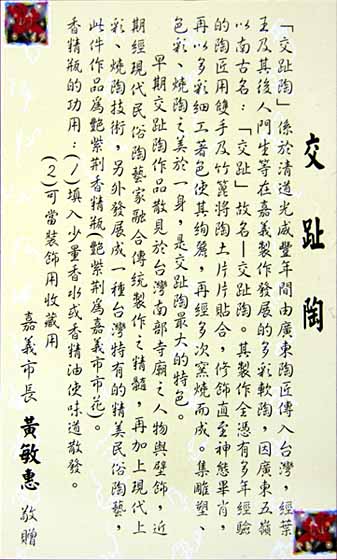 交趾陶
「交趾陶」係於清道光咸豐年間由廣東陶匠傳入台灣，經葉
王及其後人門生等在嘉義製作發展的多彩軟陶，因廣東五嶺
以南古名：「交趾」故名－交趾陶。其製作全憑有多年經驗
的陶匠用雙手及竹篦將陶土片片貼合，修飾直至神態畢肖，
再以多彩細工著色使其絢麗，再經多次窯燒而成。集雕塑、
色彩、燒陶之美於一身，是交趾陶最大的特色。
早期交趾陶作品散見於台灣南部寺廟之人物與壁飾，近
期經現代民俗陶藝家融合傳統製作之精髓，再加上現代上
彩、燒陶技術，另外發展成一種台灣特有的精美民俗陶藝，
此件作品為艷紫荊香精瓶(艷紫荊為嘉義市市花)。
香精瓶的功用：(1)填入少量香水或香精油使味道散發。
(2)可當裝飾用收藏用
嘉義市長 黃敏惠 敬贈